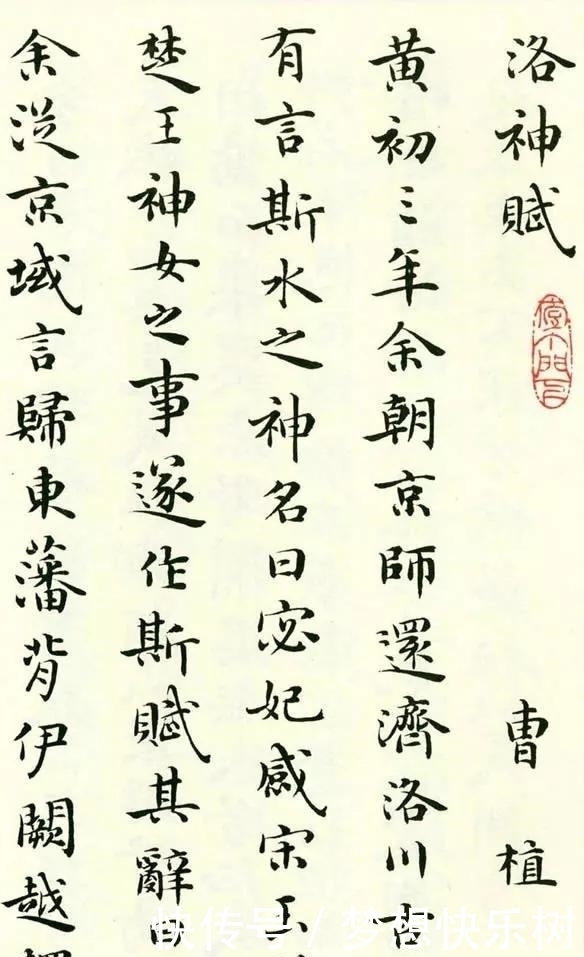 洛神賦 曹植
黄初三年余朝京師還濟洛川古
有言斯水之神名曰宓妃感宋玉
楚王神女之事遂作斯賦其辭曰
余從京域言歸東藩背伊闕越
快传号/梦想快乐树